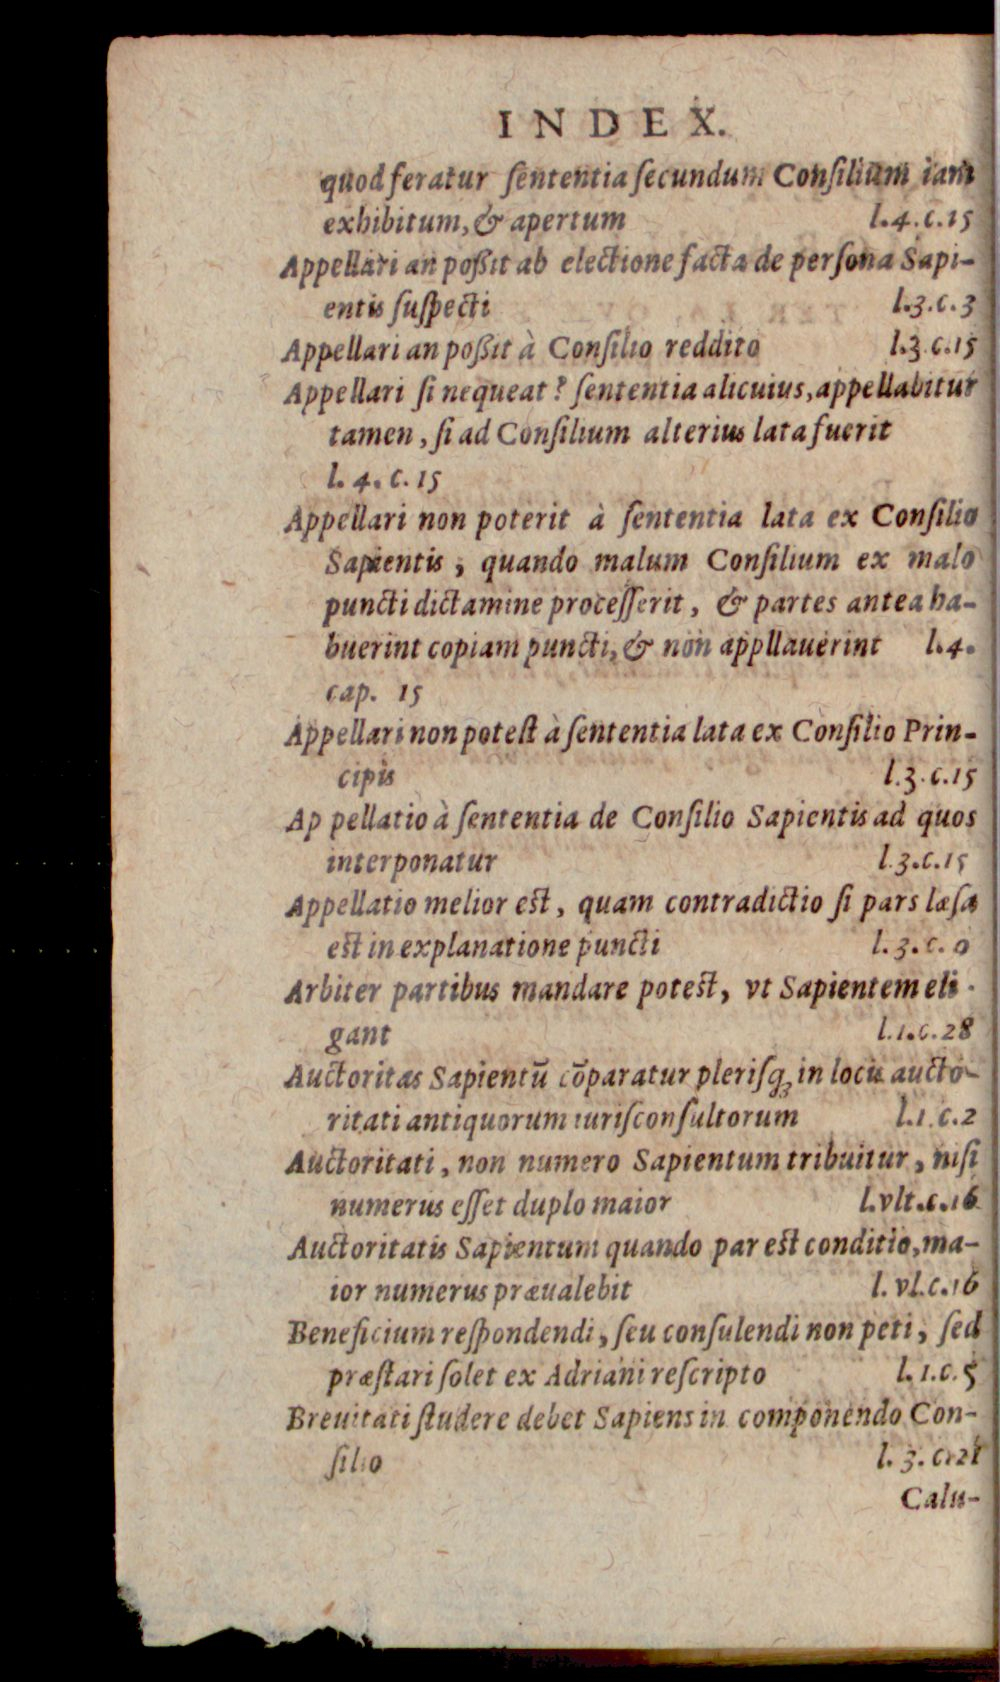 INDEX.
quod feratur ſententia ſecundum Conſilium iam
exhibitum, & apertum l.4.c.15
Appellari an poßit ab electione facta de perſona Sapi-
entis ſuſpecti l.3.c.3
Appellari an poßit à Conſilio reddito l.3.c.15
Appellari ſi nequeat? ſententia alicuius, appellabitur
tamen, ſi ad Conſilium alterius lata fuerit
l. 4. c. 15
Appellari non poterit à ſententia lata ex Conſilio
Sapientis, quando malum Conſilium ex malo
puncti dictamine proceſſerit, & partes antea ha-
buerint copiam puncti, & non appllauerint l.4.
cap. 15
Appellari non poteſt à ſententia lata ex Conſilio Prin-
cipis l.3.c.15
Ap pellatio à ſententia de Conſilio Sapientis ad quos
interponatur l.3.c.15
Appellatio melior eſt, quam contradictio ſi pars læſa
eſt in explanatione puncti l.3.c. 0
Arbiter partibus mandare poteſt, vt Sapientem eli-
gant l.1.c.28
Auctoritas Sapientū cōparatur pleriſq; in locis aucto-
ritati antiquorum iuriſconſultorum l.1.c.2
Auctoritati, non numero Sapientum tribuitur, niſi
numerus eſſet duplo maior l.vlt.c.16
Auctoritatis Sapientum quando par eſt conditio, ma-
ior numerus præualebit l. vl.c.16
Beneficium reſpondendi, ſeu conſulendi non peti, ſed
præſtari ſolet ex Adriani reſcripto l.1.c.5
Breuitati ſtudere debet Sapiens in componendo Con-
ſilio l. 3. c.21
Calu-